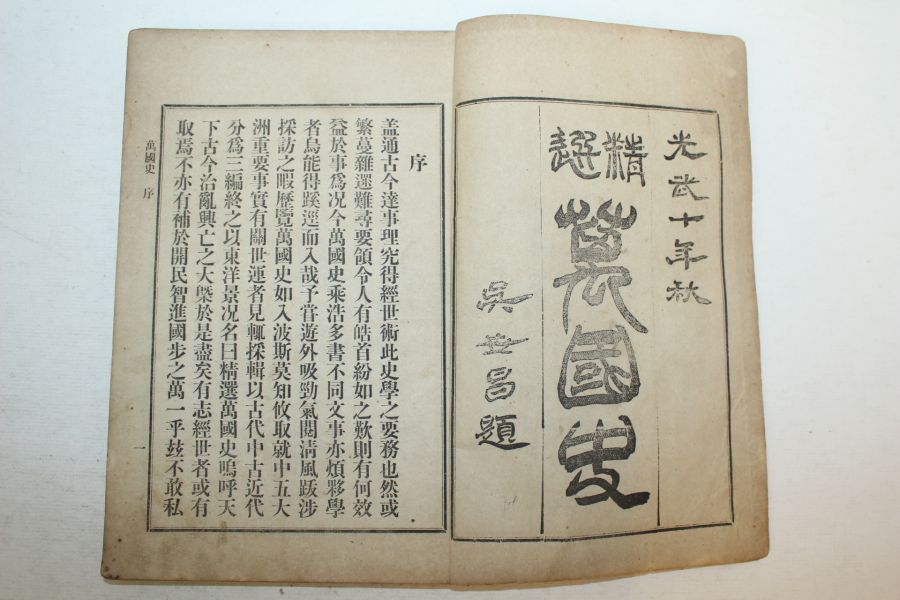 光武十年秋
精選
萬國史
吳世昌題
序
盖通古今達事理究得經世術此史學之要務也然或
繁蔓雜遝難尋要領令人有皓首紛如之歎則有何效
益於事爲况今萬國史乘浩多書不同文事亦煩夥學
者烏能得蹊逕而入哉予甞遊外吸勁氣閱淸風跋涉
採訪之暇歷覽萬國史如入波斯莫知攸取就中五大
洲重要事實有關世運者見輒採輯以古代中古近代
分爲三編終之以東洋景况名曰精選萬國史嗚呼天
下古今治亂興亡之大槩於是盡矣有志經世者或有
取焉不亦有補於開民智進國步之萬一乎玆不敢私
萬國史 序
一